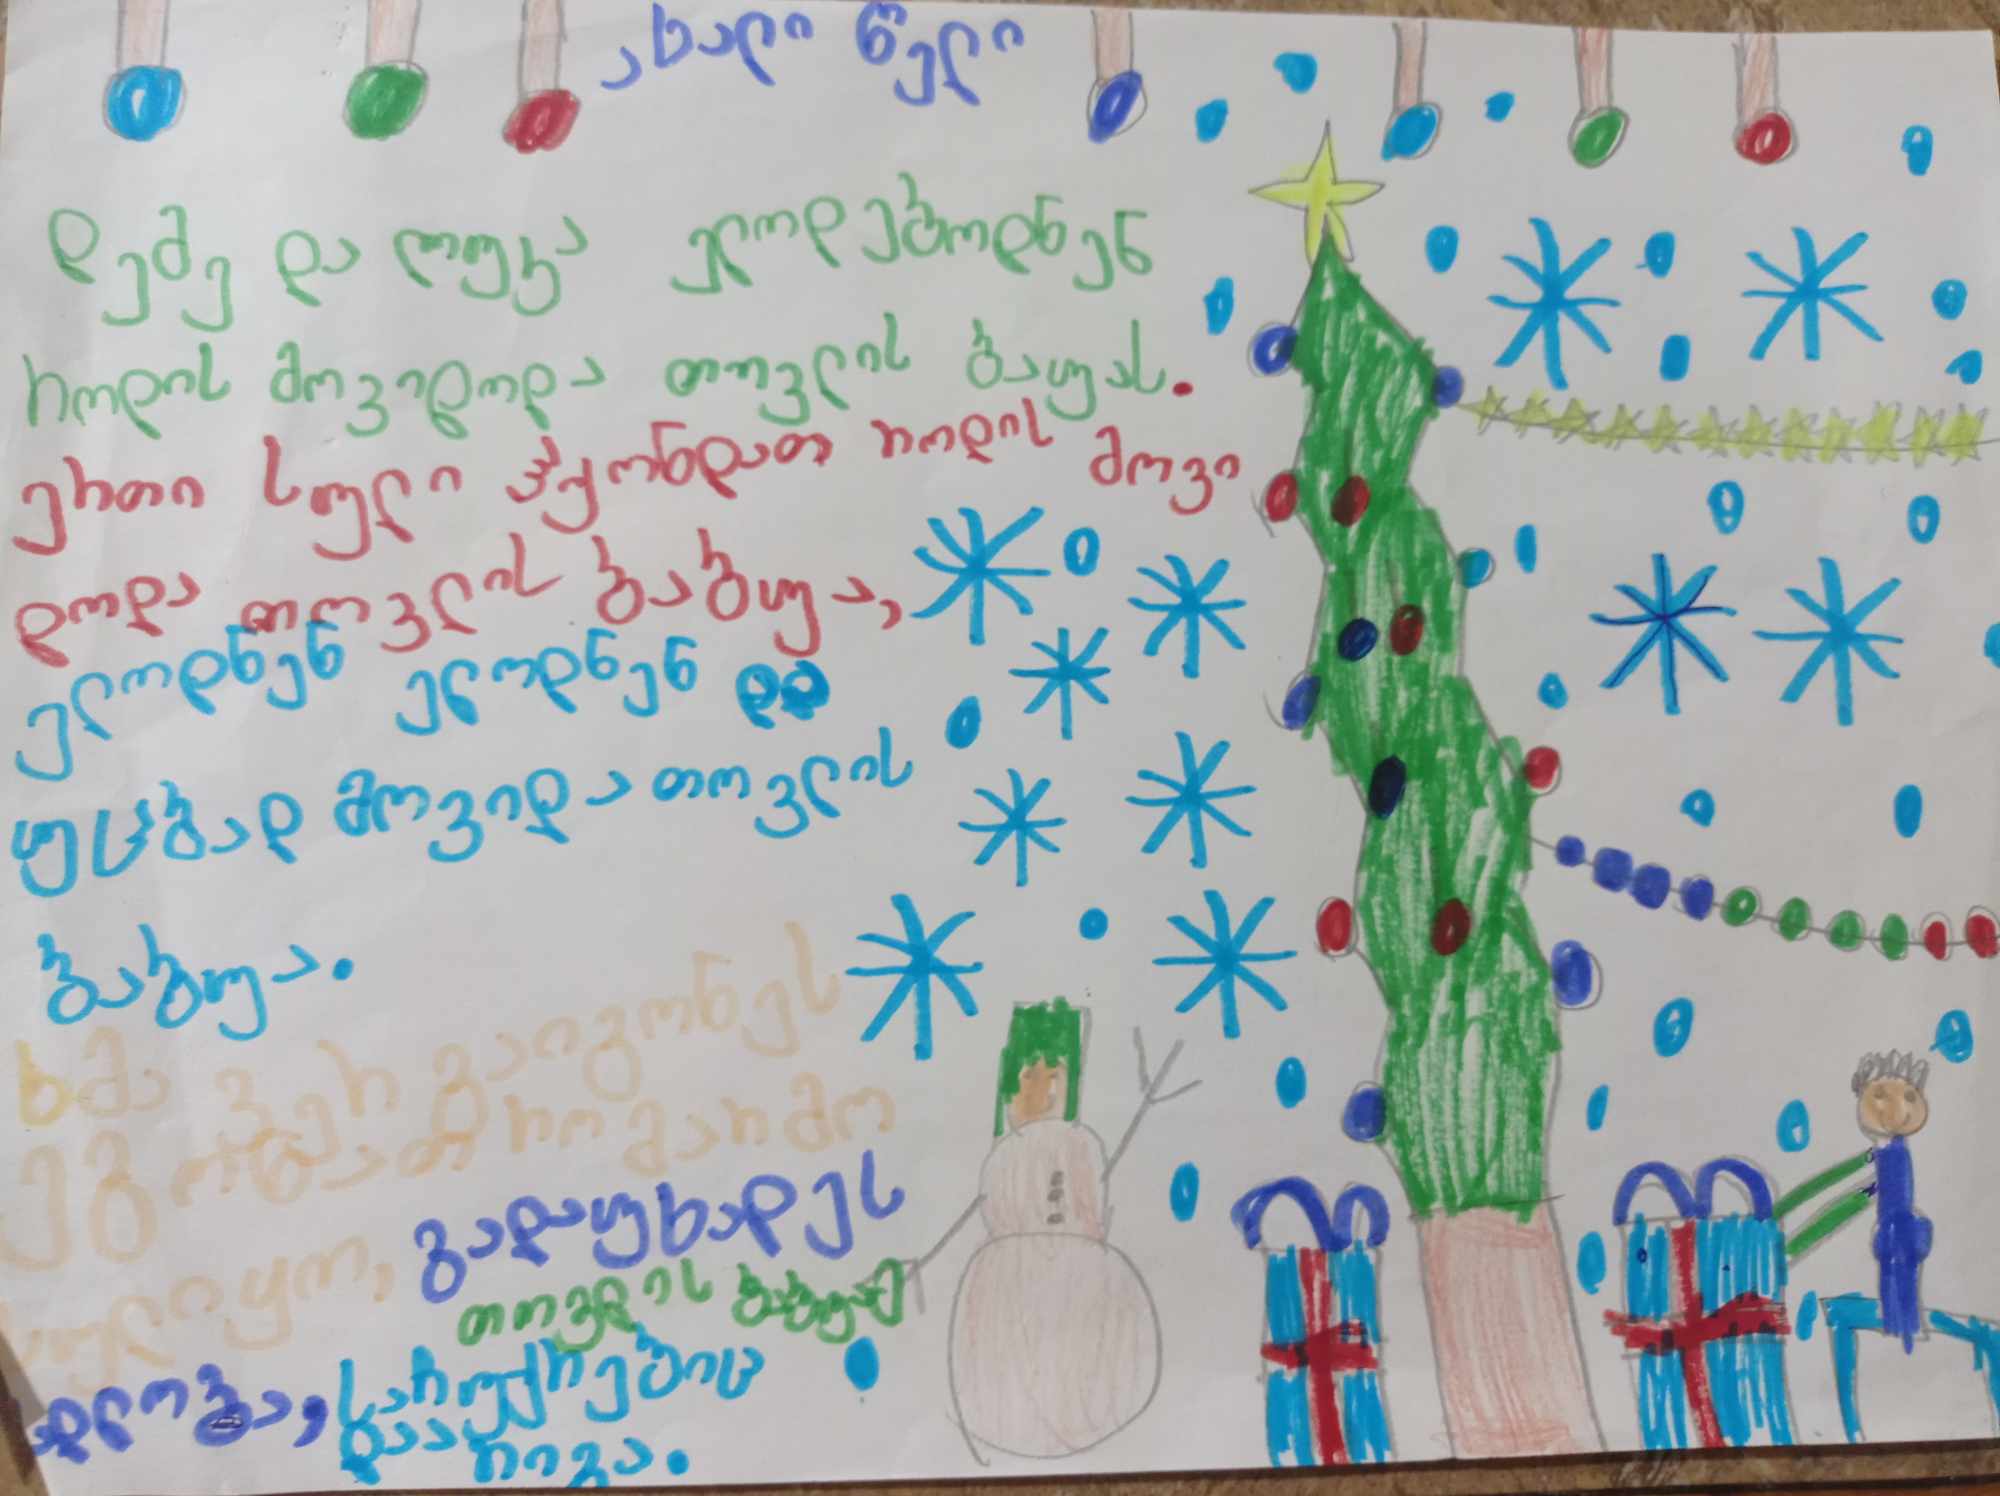 ახალი წელი
დემე და ლუკა ელოდებოდნენ
როდის მოვიდოდა თოვლის ბაუას.
ერთი სული ჰქონდათ როდის მოვი
დოდა თოვლის ბაბუა,
ელოდნენ ელოდნენ და
უცბად მოვიდა თოვლის
ბაბუა.
ხმა ვერ გაიგონეს
ეგონათ რომ არ მო
ყო, გადაუხადეს
თოვლის ბაბუამ
დლობა, საჩუქრებიც
დაა
რიგა.